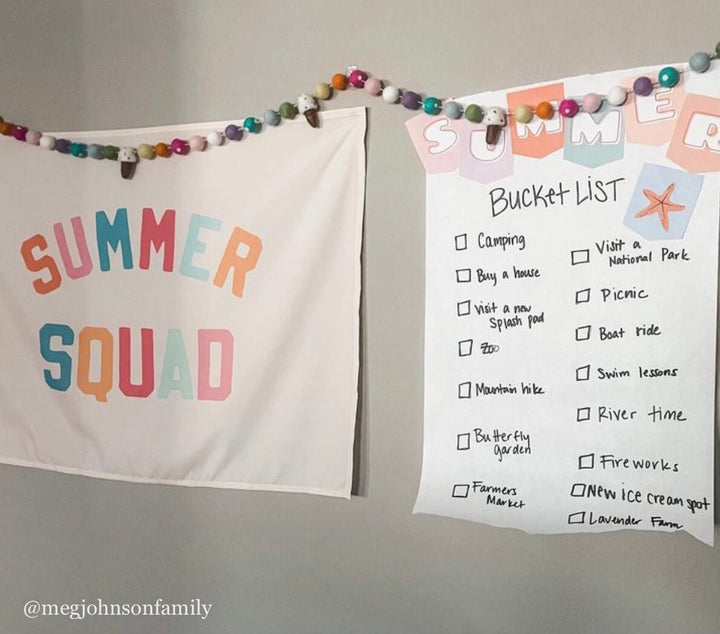 SUMMER
SQUAD
SUMMER
BUCKET LIST
Camping
Buy a house
Visit a new
Splash pad
Zoo
Mountain hike
Butterfly
garden
Farmers
Market
Visit a
National Park
Picnic
Boat ride
Swim lessons
River time
Fireworks
New ice cream spot
Lavender Farm
@megjohnsonfamily